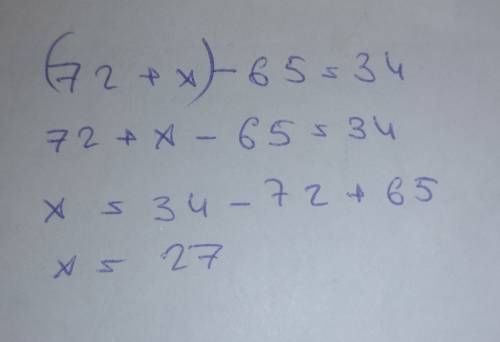 (72 + x) - 65 = 34
72 + x - 65 = 34
x = 34 - 72 + 65
x = 27